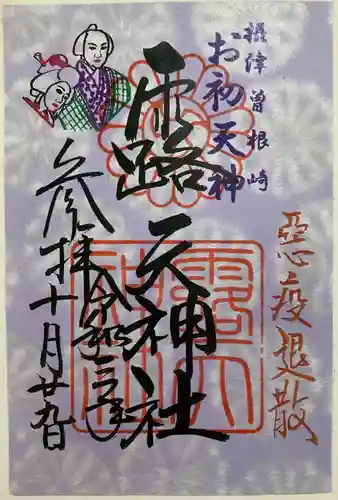 摂津曽根崎
お初天神
悪疫退散
露天神社
令和三年
参拝十月廿九日